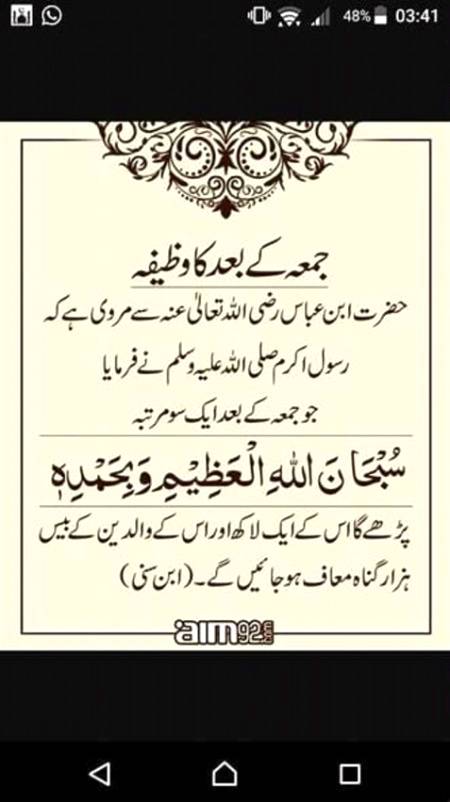 48% 03:41
جمعہ کے بعد کا وظیفہ
حضرت ابن عباس رضی اللہ تعالیٰ عنہ سے مروی ہے کہ
رسول اکرم صلی اللہ علیہ وسلم نے فرمایا
جو جمعہ کے بعد ایک سو مرتبہ
سُبْحَانَ اللهِ الْعَظِيْمِ وَبِحَمْدِهٖ
پڑھے گا اس کے ایک لاکھ اور اس کے والدین کے بیس
ہزار گناہ معاف ہو جائیں گے۔ (ابن سنی)
aim92.com